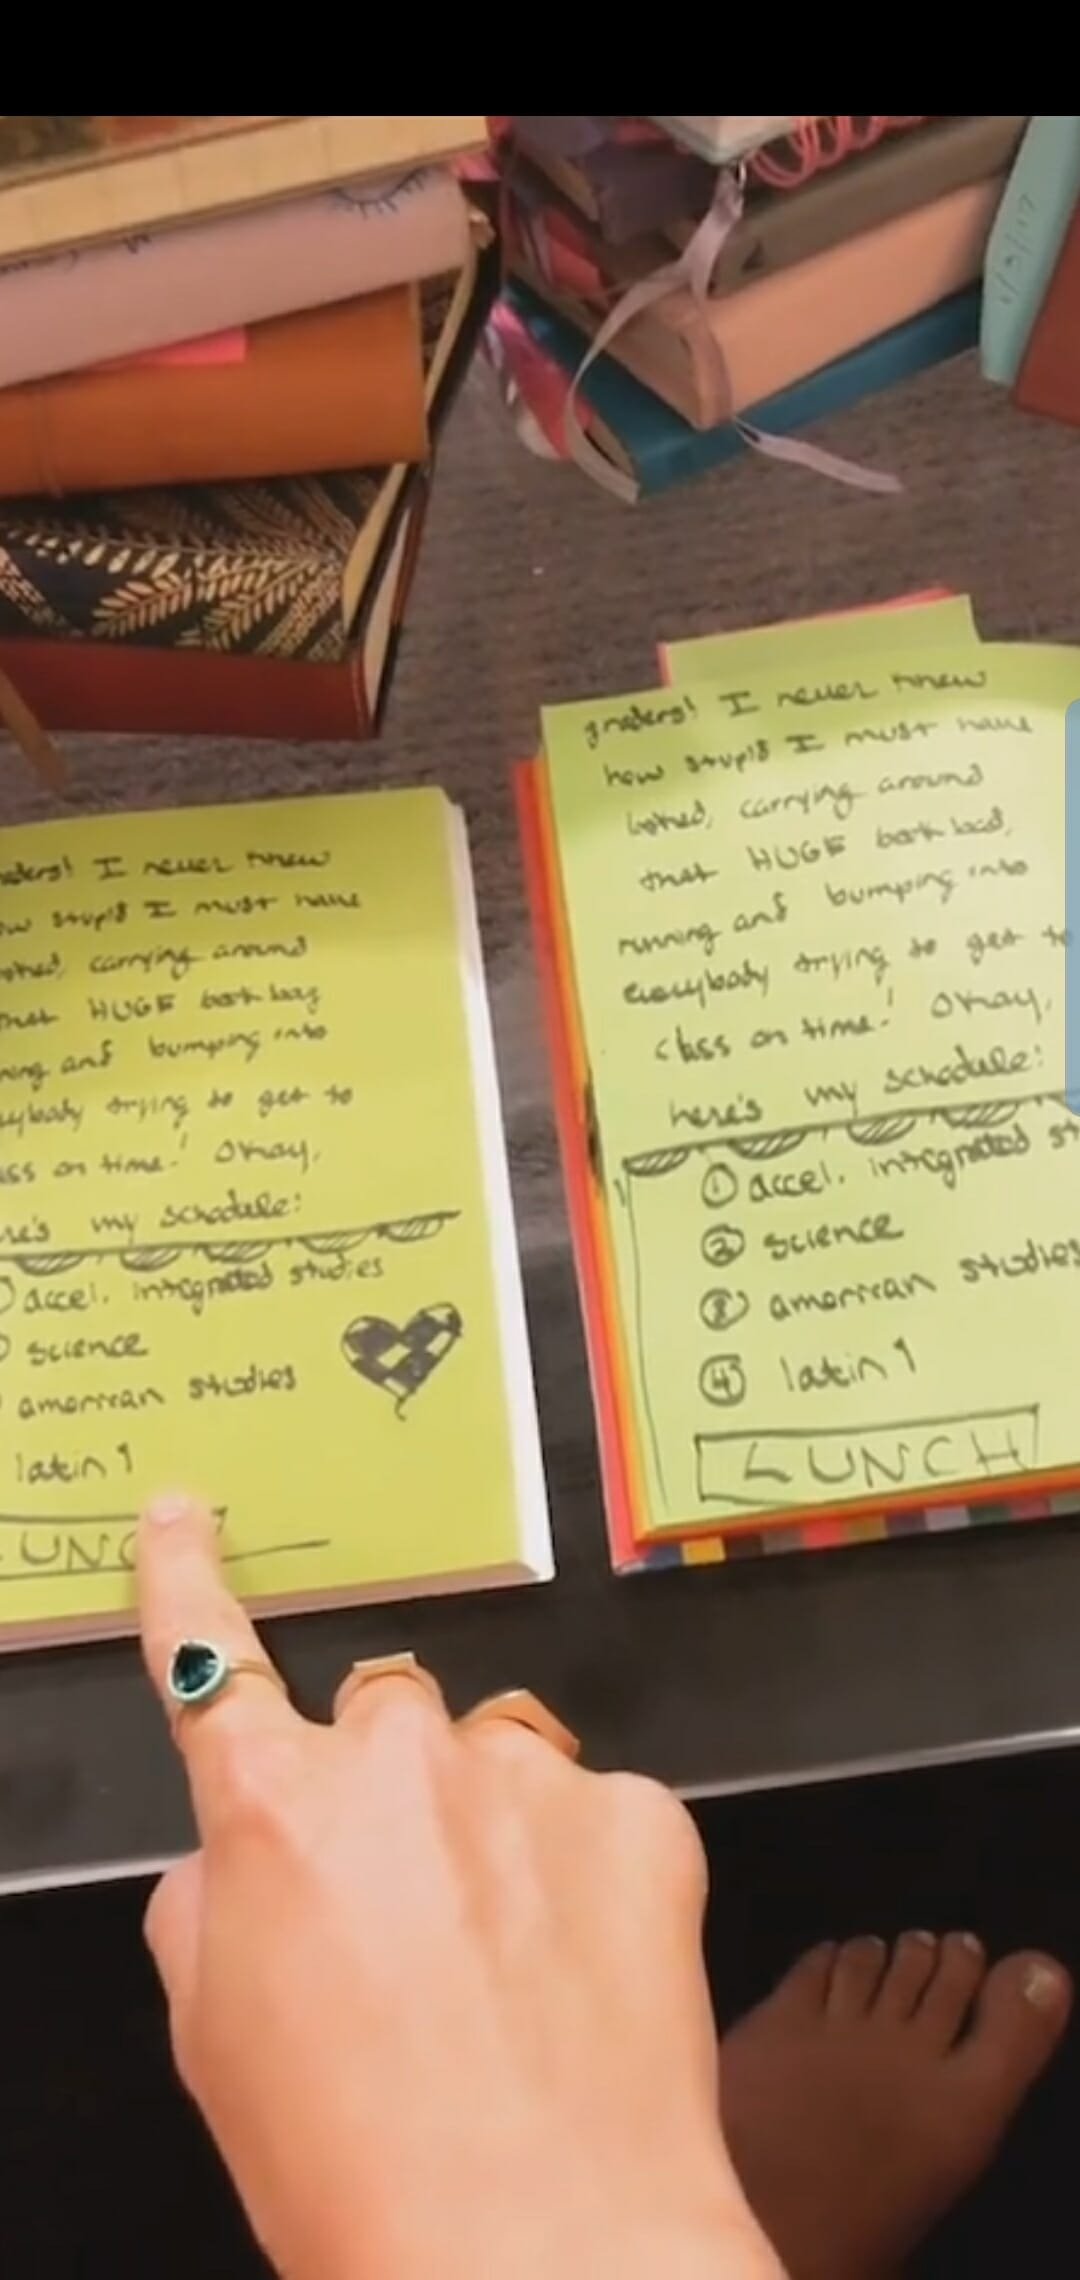 aders! I never knew
ow stupid I must have
oked, carrying around
that HUGE book bag
ning and bumping into
rybody trying to get to
ass on time! Okay,
re's my schedule:
accel. integrated studies
science
american studies
latin 1
LUNC
graders! I never knew
how stupid I must have
looked, carrying around
that HUGE book bag,
running and bumping into
everybody trying to get to
class on time! Okay,
here's my schedule:
① accel. integrated st
② science
③ american studies
④ latin 1
LUNCH